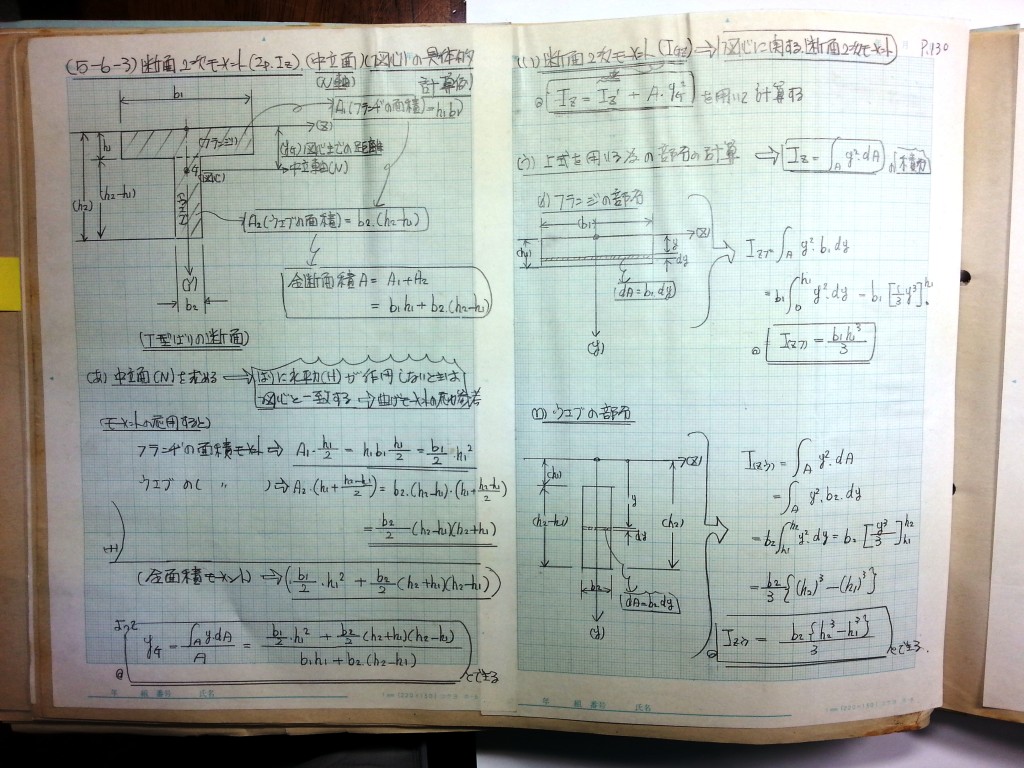 (5-6-3) 断面2次モーメント(Iz) (中立面)(図心)の具体的
(N軸) 計算例)
b1
A1(フランヂの面積)=h1b1
(Z)
h1
(フランジ)
(yG)図心までの距離
中立軸(N)
図心(C)
(h2)
(h2-h1)
A2(ウエブの面積)=b2.(h2-h1)
(Y)
b2
全断面積A=A1+A2
=b1h1+b2.(h2-h1)
(T型ばりの断面)
(あ)中立面(N)を求める
ばりに水平力(H)が作用しないときは
図心と一致する→曲げモーメントの応力参考
モーメントの応用すると)
フランヂの面積モーメント⇒ A1・h1/2 = h1b1・h1/2 = b1/2・h1²
ウエブの( 〃 )⇒A2・(h1+(h2-h1)/2)=b2.(h2-h1)・(h1+(h2-h1)/2)
=b2/2(h2-h1)(h2+h1)
+)
(全面積モーメント)⇒(b1/2・h1²+b2/2(h2+h1)(h2-h1))
よって
yG=∫A y.dA/A=(b1/2・h1²+b2/2(h2+h1)(h2-h1))/(b1h1+b2.(h2-h1))
とできる
年 組 番号 氏名
(い)断面2次モーメント(IGz)⇒図心に関する断面2次モーメント P.130
Iz=Iz'+A・yG² を用いて計算する
(う)上式を用いる為の部分の計算 ⇒ Iz=∫A y².dA の積分
(イ)フランジの部分
(b1)
(Z)
(h1)
y
dy
dA=b1.dy
(y)
Izフ=∫A y².b1.dy
=b1∫0^h1 y².dy=b1[1/3y³]0^h1
I(zフ)=b1h1³/3
(ロ)ウエブの部分
(Z)
(h1)
y
(h2-h1)
(h2)
dy
b2
dA=b2.dy
(y)
I(zウ)=∫A y².dA
=∫A y².b2.dy
=b2∫h1^h2 y².dy=b2[y³/3]h1^h2
=b2/3{(h2)³-(h1)³}
I(zウ)=b2{h2³-h1³}/3
とできる.
年 組 番号 氏名